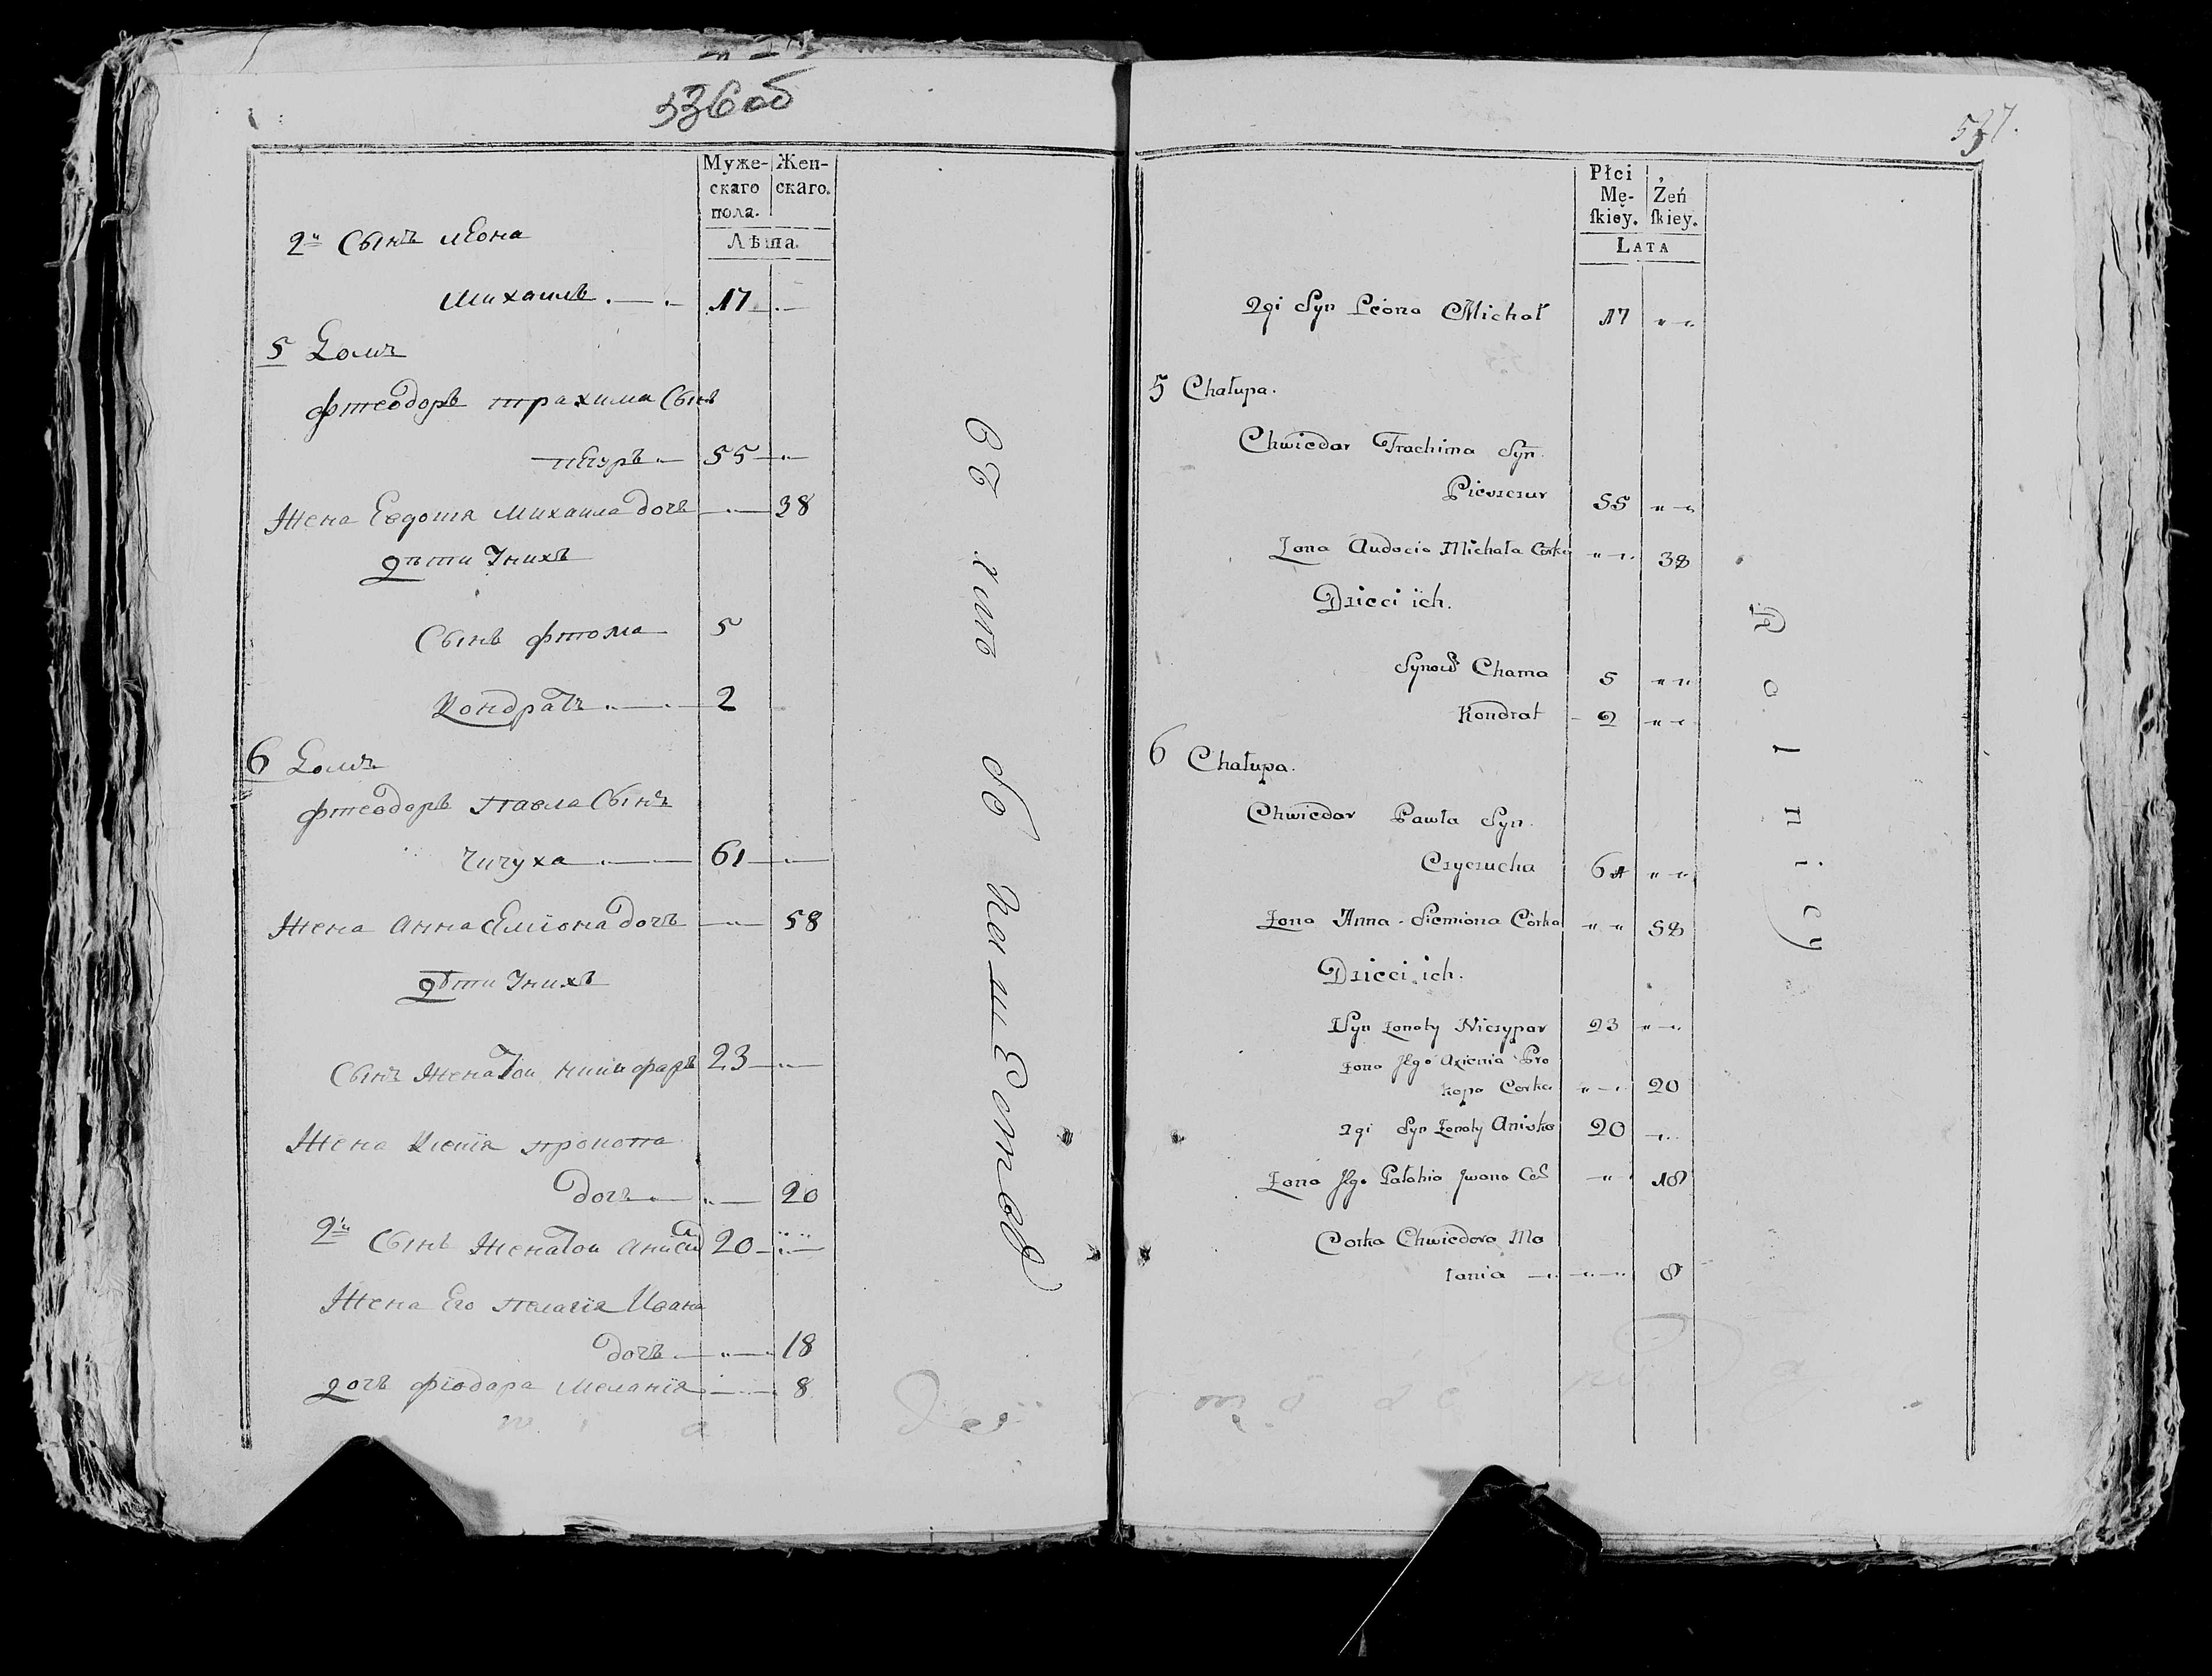 536 об
Муже-
скаго
пола.
Жен-
скаго.
Лѣта.
2й Сынъ леона
Михаилъ 17
5 Домъ
фтеодоръ трахима Сынъ
55
Жена Евдотя Михаила дочь 38
дѣти Ўнихъ
Сынъ фтома 5
Кондратъ 2
6 Домъ
фтеодоръ павла Сынъ
Чичуха 61
Жена Анна Семiона дочь 58
дѣти Ўнихъ
Сынъ Женатои 23
Жена Ксенiя прокопа
дочь 20
2й Сынъ Женатои 20
Жена Его пелагiя Ивана
дочь 18
дочь фiодора Меланiя 8
537.
Płci
Mę-
ſkiey.
Żeń
ſkiey.
LATA
2gi Syn Leona Michał 17 " "
5 Chałupa.
Chwiedor Trachima Syn
55 " "
Zona Audocia Michała Corka " " 38
Dzieci ich.
Synow Chama 5 " "
Kondrat 2 " "
6 Chałupa.
Chwiedor Pawła Syn.
Czyczucha 61 " "
Zona Anna Siemiona Córka " " 58
Dzieci ich.
1 Syn zonaty Niczypor 23 " "
zona Jego Axienia Pro
kopa Corka " " 20
2gi Syn Zonaty Anisko 20 "
Zona Jego Pałahia Jwana Cor " 18
Corka Chwiedora Ma
łania " " 8
Rolnicy